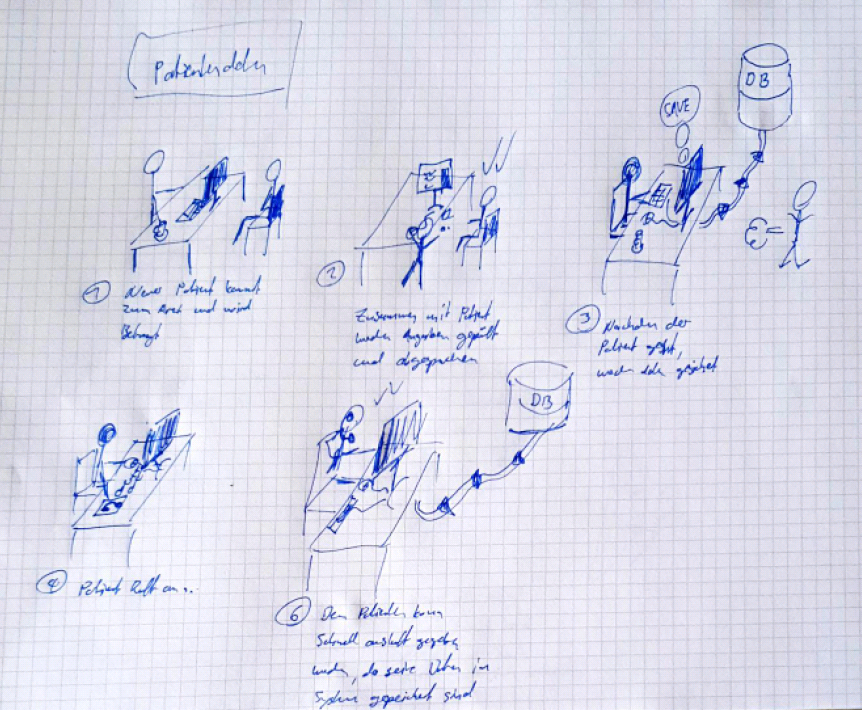 Patientendaten
DB
SAVE
1 Neuer Patient kommt
zum Arzt und wird
Befragt
2
Zusammen mit Patient
werden Angaben gefüllt
und abgesprochen
3 Nachdem der
Patient geht,
werden daten gespeichert
4 Patient Ruft an...
DB
6 Dem Patienten kann
Schnell auskunft gegeben
werden, da seine Daten im
System gepeichet sind